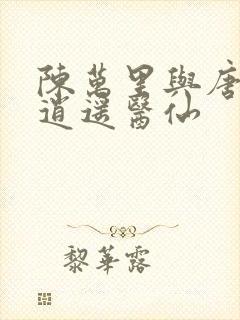 陳萬里與唐
逍遙醫仙
黎華露